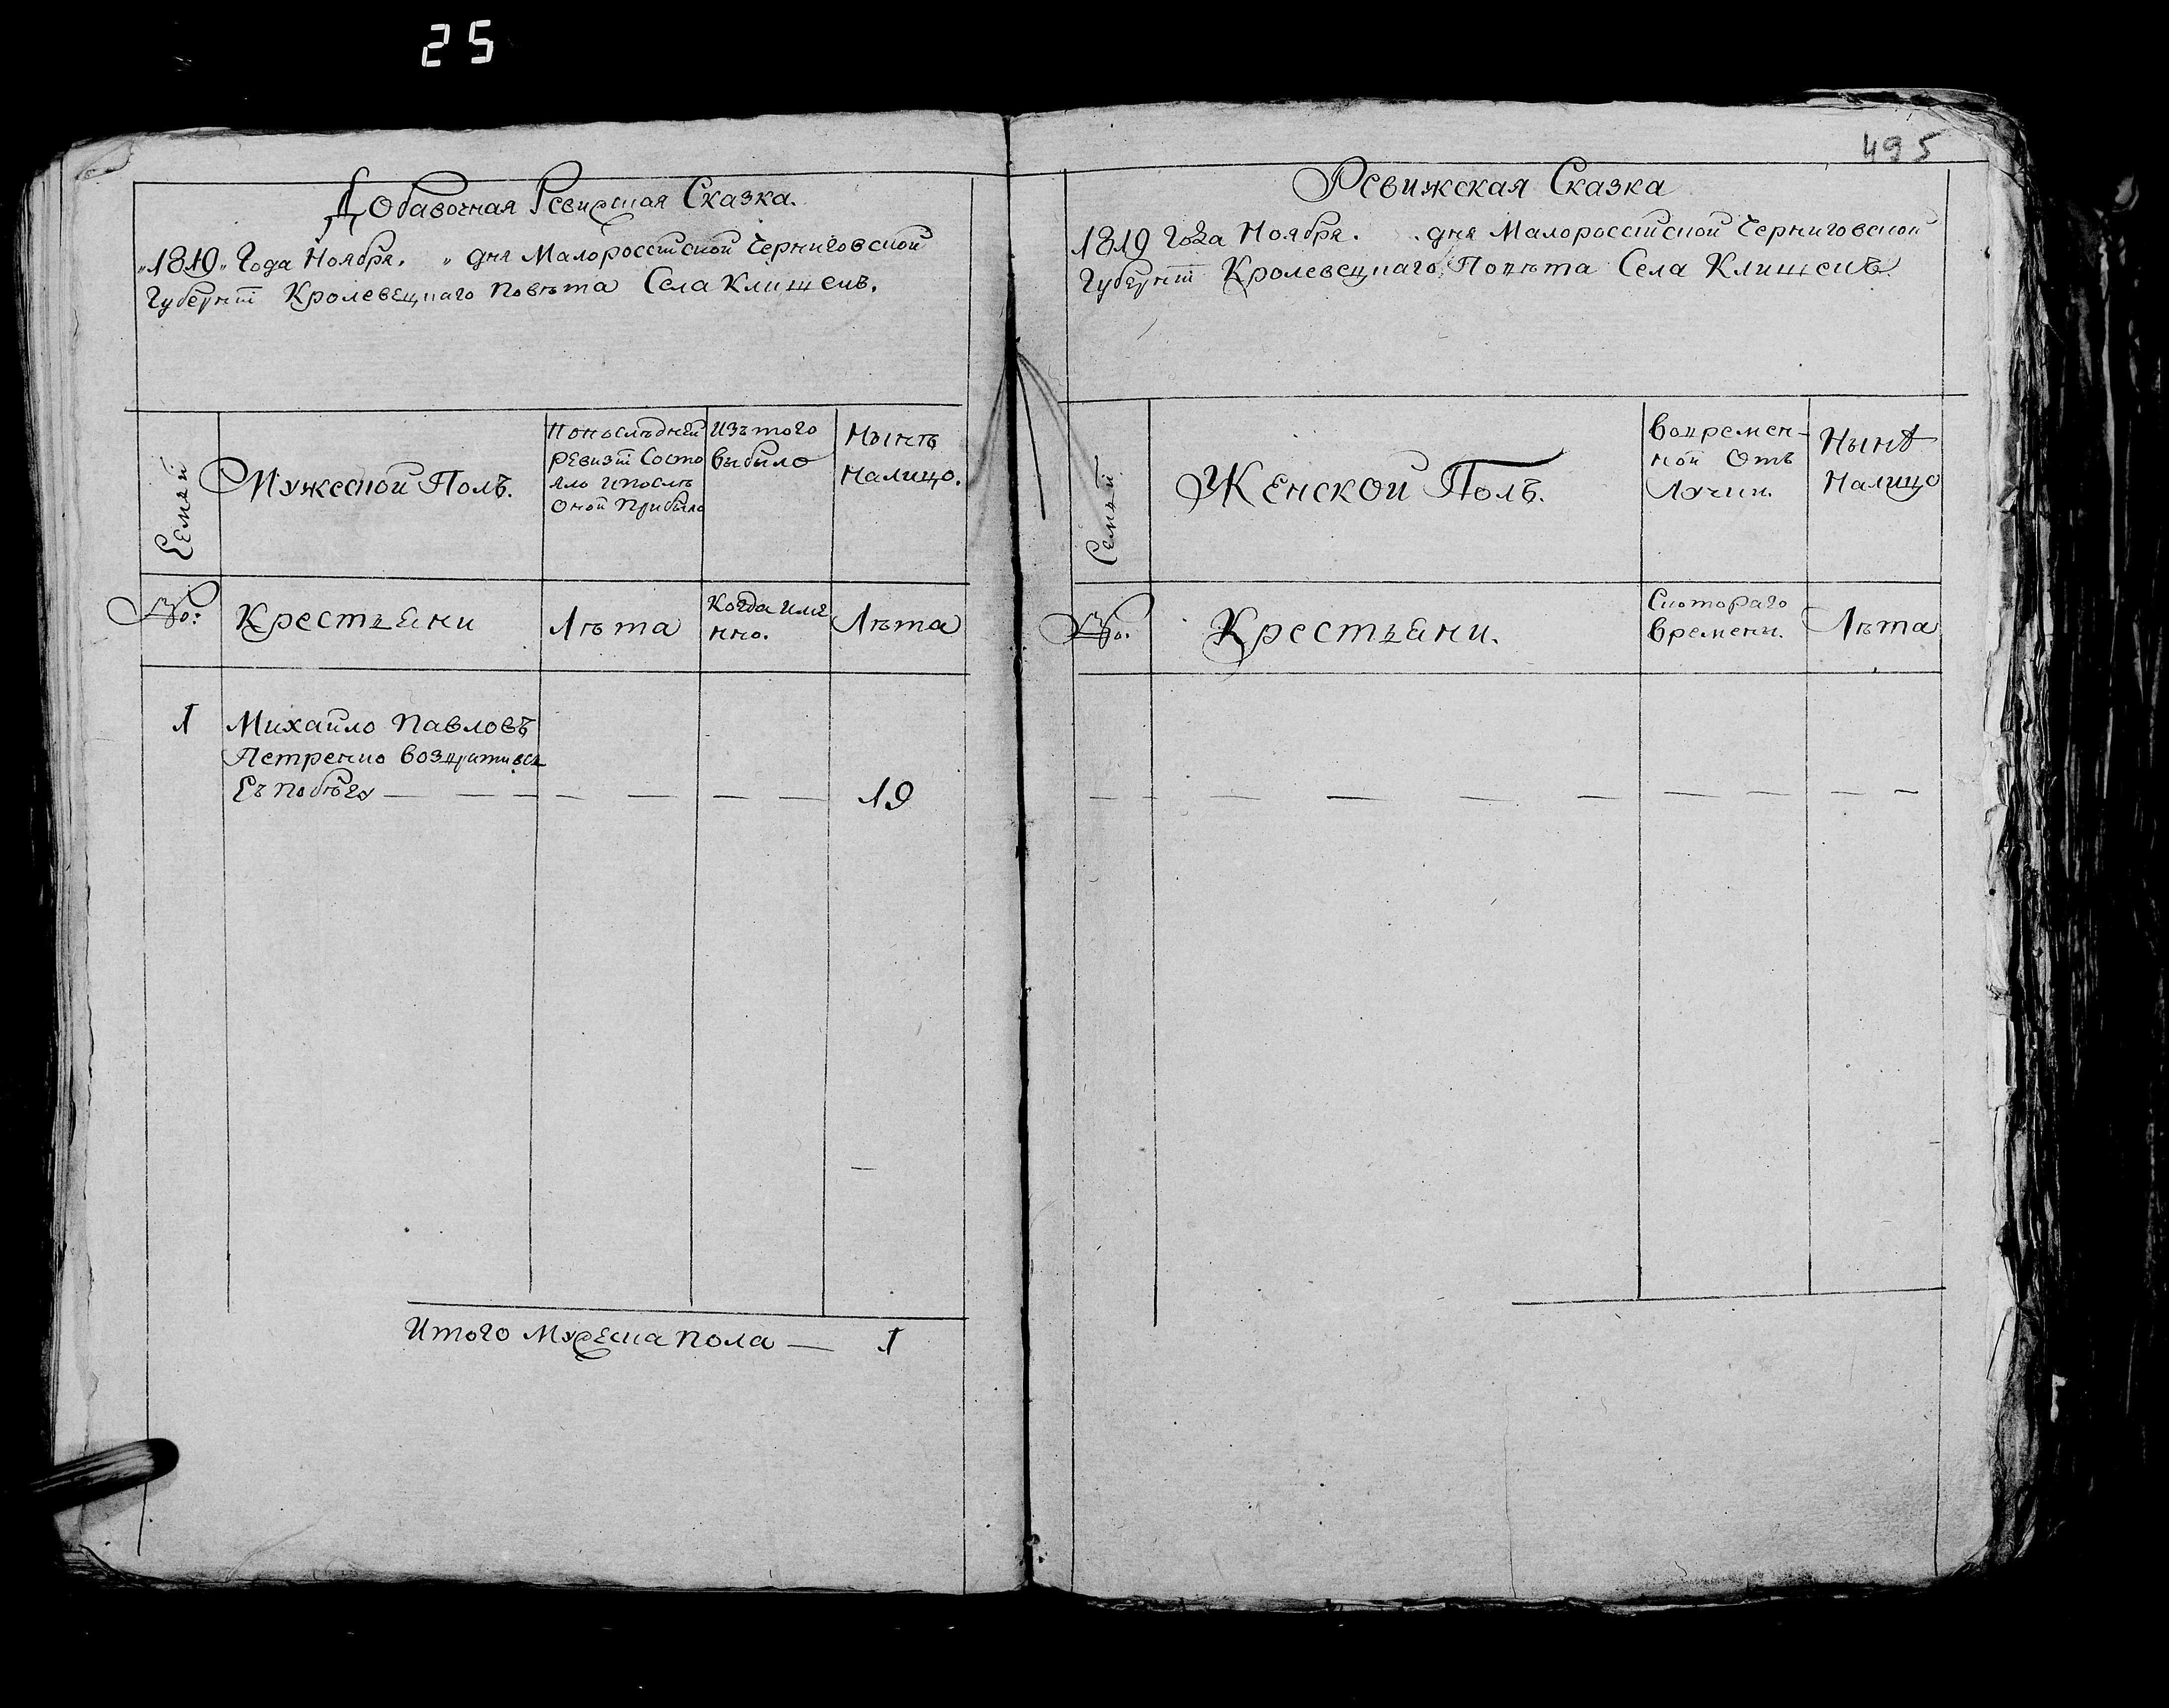 25
495
Добавочная Ревижская Сказка.
„1819„ Года Ноября. „ дня Малороссійской Черниговской
Губерніи Кролевецкаго Повѣта Села Клишекъ.
Семьи
Мужеской Полъ.
Попослѣдней
ревизіи Состо
яло ипослѣ
Оной Прибыло
Изътого
выбыло
Нынѣ
налицо.
№:
Крестьяни
Лѣта
Когда имя
нно.
Лѣта
1
Михайло Павловъ
Петренко возвратився
Съ побѣга — — — — — — — 19
Итого Мужеска пола — 1
Ревижская Сказка
1819 Года Ноября. . дня Малороссійской Черниговской
Губерніи Кролевецкаго Повѣта Села Клишекъ
Семьи
Женской Полъ.
Вовремен-
ной Отъ
Лучки.
Нынѣ
Налицо
№.
Крестьяни.
Скотораго
времени.
Лѣта
— — — — — — — — — —